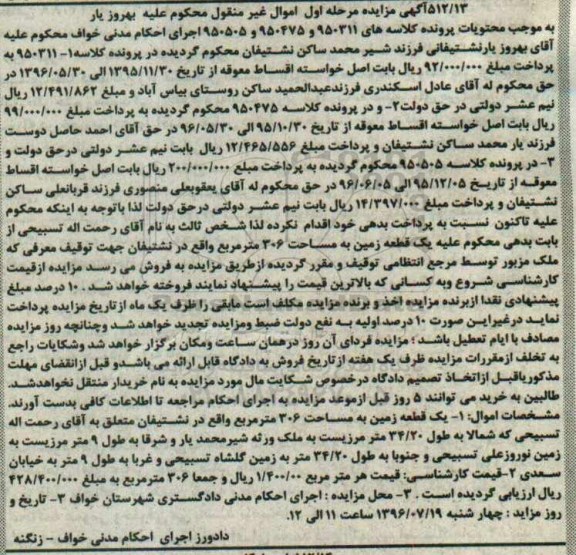 ۵۱۲/۱۳آگهی مزایده مرحله اول اموال غیر منقول محکوم علیه بهروز یار
به موجب محتویات پرونده کلاسه های ۹۵۰۳۱۱ و ۹۵۰۴۷۵ و ۹۵۰۵۰۵ اجرای احکام مدنی خواف محکوم علیه
آقای بهروز یارنشتیفانی فرزند شیر محمد ساکن نشتیفان محکوم گردیده در پرونده کلاسه۱- ۹۵۰۳۱۱ به
پرداخت مبلغ ۹۲/۰۰۰/۰۰۰ ریال بابت اصل خواسته اقساط معوقه از تاریخ ۱۳۹۵/۱۱/۳۰ الی ۱۳۹۶/۰۵/۳۰ در
حق محکوم له آقای عادل اسکندری فرزندعبدالحمید ساکن روستای بیاس آباد و مبلغ ۱۲/۴۹۱/۸۶۲ ریال
نیم عشر دولتی در حق دولت۲- و در پرونده کلاسه ۹۵۰۴۷۵ محکوم گردیده به پرداخت مبلغ ۹۹/۰۰۰/۰۰۰
ریال بابت اصل خواسته اقساط معوقه از تاریخ ۹۵/۱۰/۳۰ الی ۹۶/۰۵/۳۰ در حق آقای احمد حاصل دوست
فرزند یار محمد ساکن نشتیفان و پرداخت مبلغ ۱۲/۴۶۵/۵۵۶ ریال بابت نیم عشر دولتی درحق دولت و
۳- در پرونده کلاسه ۹۵۰۵۰۵ محکوم گردیده به پرداخت مبلغ ۲۰۰/۰۰۰/۰۰۰ ریال بابت اصل خواسته اقساط
معوقه از تاریخ ۹۵/۱۲/۰۵ الی ۹۶/۰۶/۰۵ در حق محکوم له آقای یعقوبعلی منصوری فرزند قربانعلی ساکن
نشتیفان و پرداخت مبلغ ۱۴/۳۹۷/۰۰۰ ریال بابت نیم عشر دولتی درحق دولت لذا باتوجه به اینکه محکوم
علیه تاکنون نسبت به پرداخت بدهی خود اقدام نکرده لذا شخص ثالث به نام آقای رحمت اله تسبیحی از
بابت بدهی محکوم علیه یک قطعه زمین به مساحت ۳۰۶ مترمربع واقع در نشتیفان جهت توقیف معرفی که
ملک مزبور توسط مرجع انتظامی توقیف و مقرر گردیده ازطریق مزایده به فروش می رسد مزایده ازقیمت
کارشناسی شروع وبه کسانی که بالاترین قیمت را پیشنهاد نمایند فروخته خواهد شد . ۱۰ درصد مبلغ
پیشنهادی نقدا ازبرنده مزایده اخذ و برنده مزایده مکلف است مابقی را ظرف یک ماه ازتاریخ مزایده پرداخت
نماید درغیراین صورت ۱۰ درصد اولیه به نفع دولت ضبط ومزایده تجدید خواهد شد وچنانچه روز مزایده
مصادف با ایام تعطیل باشد ؛ مزایده فردای آن روز درهمان ساعت ومکان برگزار خواهد شد وشکایات راجع
به تخلف ازمقررات مزایده ظرف یک هفته از تاریخ فروش به دادگاه قابل ارائه می باشدو قبل ازانقضای مهلت
مذکوریاقبل ازاتخاذ تصمیم دادگاه درخصوص شکایت مال مورد مزایده به نام خریدار منتقل نخواهدشد.
طالبین به خرید می توانند ۵ روز قبل ازموعد مزایده به اجرای احکام مراجعه تا اطلاعات کافی بدست آورند.
مشخصات اموال: ۱- یک قطعه زمین به مساحت ۳۰۶ مترمربع واقع در نشتیفان متعلق به آقای رحمت اله
تسبیحی که شمالا به طول ۳۴/۲۰ متر مرزیست به ملک ورثه شیرمحمد یار و شرقا به طول ۹ متر مرزیست به
زمین نوروزعلی تسبیحی و جنوبا به طول ۳۴/۲۰ متر به زمین گلشاه تسبیحی و غربا به طول ۹ متر به خیابان
سعدی ۲-قیمت کارشناسی: قیمت هر متر مربع ۱/۴۰۰/۰۰ ریال و جمعا ۳۰۶ مترمربع به مبلغ ۴۲۸/۴۰۰/۰۰۰
ریال ارزیابی گردیده است . ۳- محل مزایده : اجرای احکام مدنی دادگستری شهرستان خواف ۳- تاریخ و
روز مزاید : چهار شنبه ۱۳۹۶/۰۷/۱۹ ساعت ۱۱ الی ۱۲.
دادورز اجرای احکام مدنی خواف - زنگنه